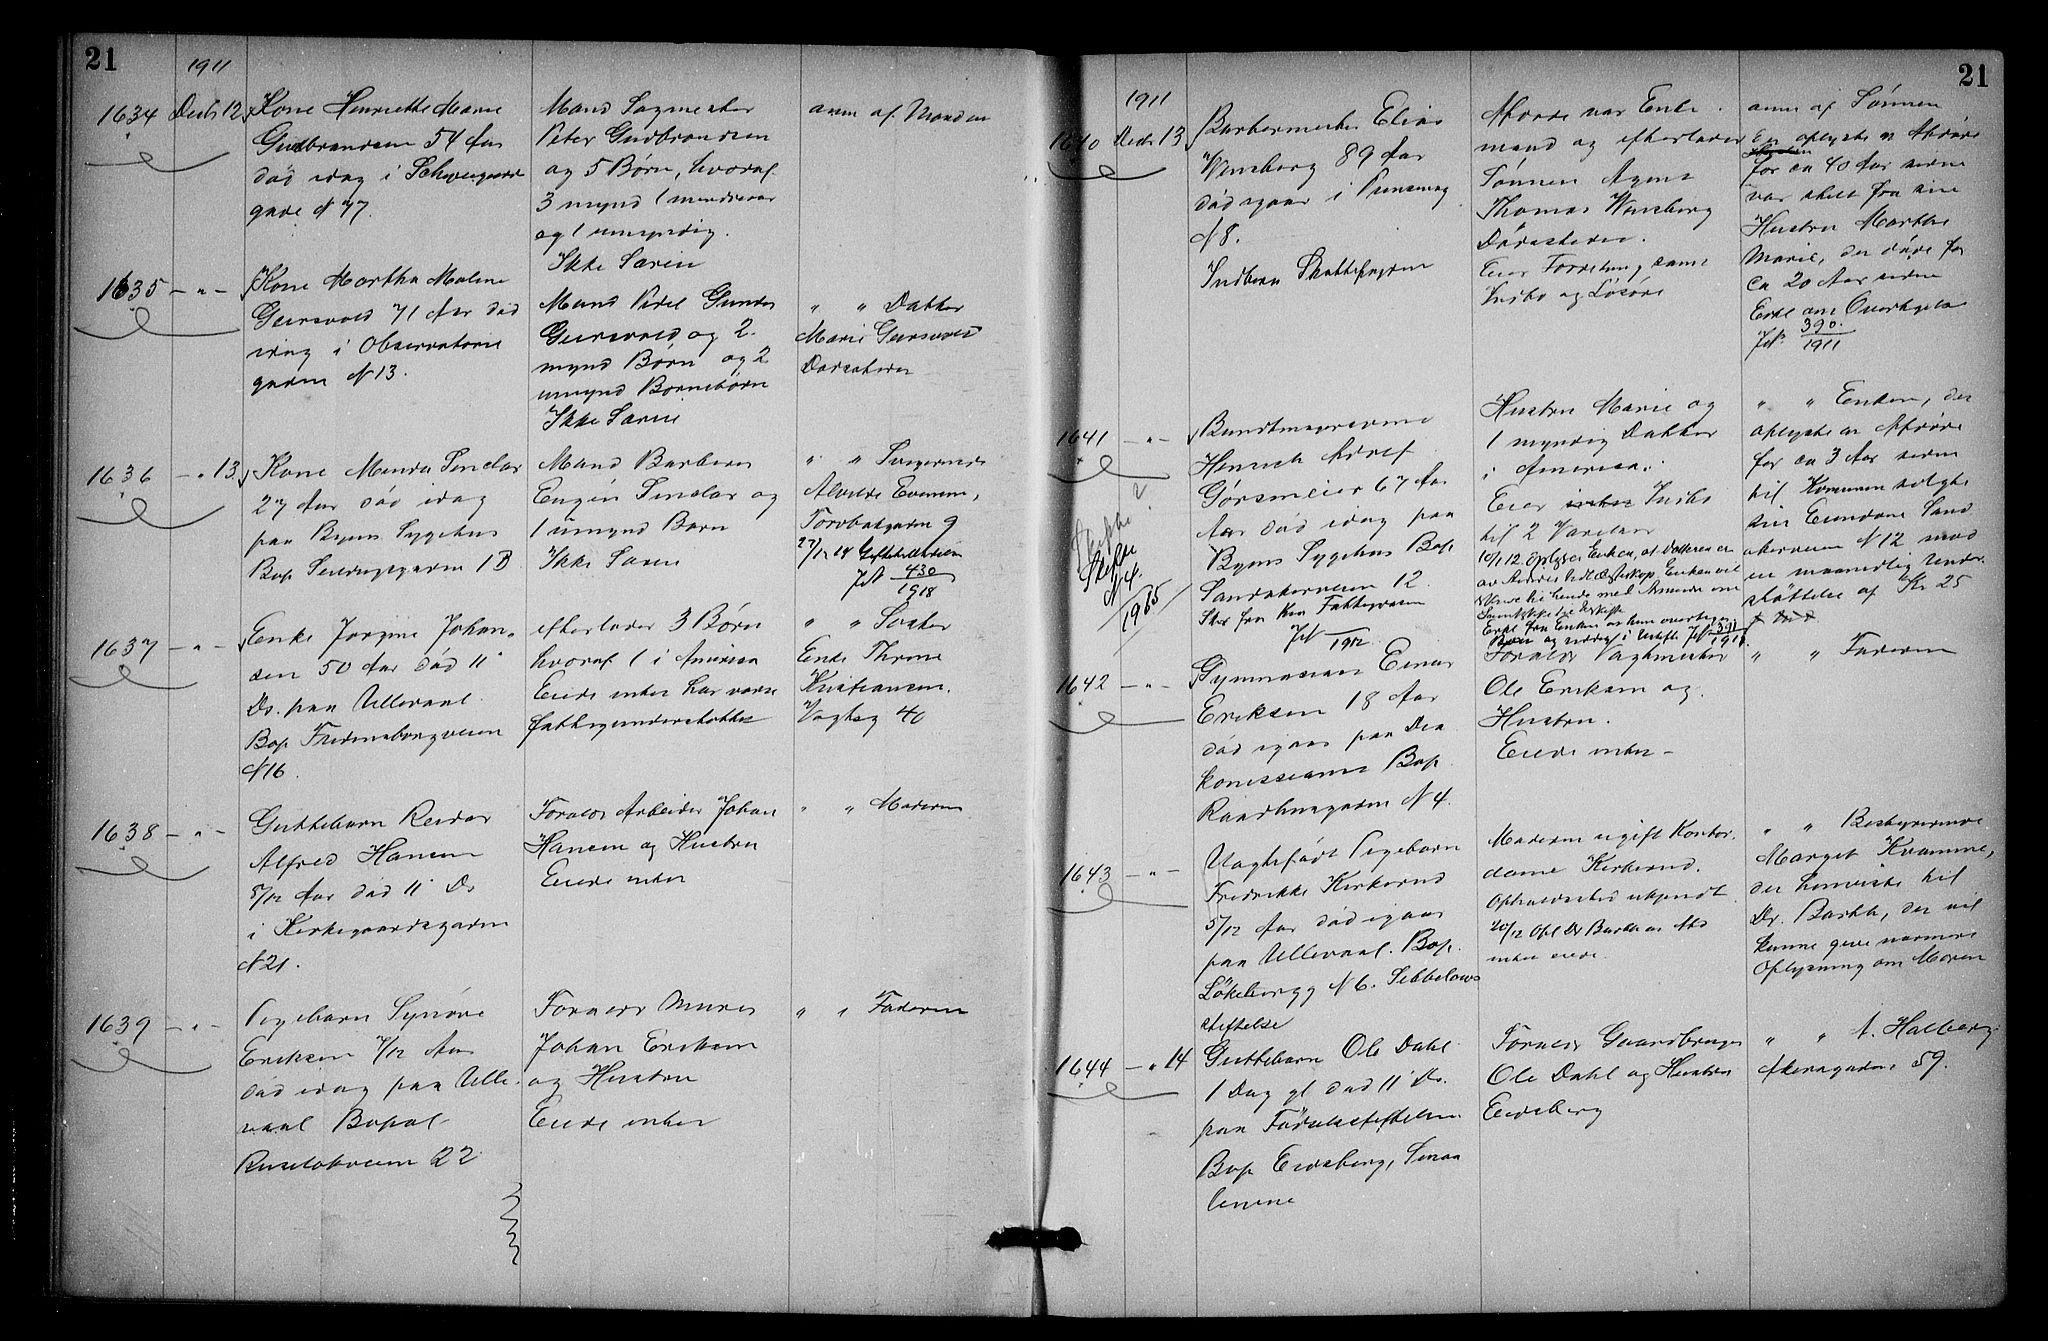 21
1911
1634 Decb 12
Kone Henriette Marie
Gudbrandsen 54 Aar
död idag i Schweigaards
gade N 77.
Mand Sagmester
Peter Gudbrandsen
og 5 Børn, hvoraf
3 mynd 1 mindreaar
og 1 umyndig.
Ikke Særeie
anm af Manden
1635 — " —
Kone Martha Maline
Geirsvold 71 Aar död
idag i Observatorie
gaden N 13.
Mand Peder Gunder
Geirsvold og 2
mynd Børn og 2
umynd Børnebörn
Ikke Særeie
" " Datter
Marie Geirsvold
Dødsstedet
1636 — " 13
Kone Minda Sindar
27 Aar död idag
paa Byens Sygehus
Bop Seilduksgaden 1 B
Mand Barberer
Sindar og
1 umynd Barn
Ikke Særeie
" " Svigerinde
Evensen,
Torvbakgaden 9
430
1918
1637 — " —
Enke Jørgine Johan-
sen 50 Aar död 11'
Ds. paa Ullevaal
Bop Fredensborgveien
N 16.
efterlader 3 Børn
hvoraf 1 i America
Eiede intet har været
fattigunderstøttet
" " Søster
Enke Thrine
Kristiansen
Vogtsg 40
1638 — " —
Guttebarn Reidar
Alfred Hansen
5/12 Aar död 11' Ds
i Kirkegaardsgaden
N 21.
Forældr Arbeider Johan
Hansen og Hustru
Eiede intet
" " Moderen
1639 — " —
Pigebarn Synöve
Eriksen 7/12 Aar
död idag paa Ulle-
vaal Bopæl
Ruseløkveien 22
Forældr Murer
Johan Eriksen
og Hustru
Eiede intet
" " Faderen
21
1911
1640 Decb 13
Barbermester Elias
Wensberg 89 Aar
död igaar i Prinsensg
N 8.
Indbern Skattefogden
Afdøde var Enke-
mand og efterlader
Sønnen Agent
Thomas Wensberg
Dödsstedet.
Eier Forretning samt
Indbo og Løsøre
anm af Sønnen
oplyste at Afdøde
for ca 40 Aar siden
var skilt fra sin
Hustru Marthe
Marie, der døde for
ca 20 Aar siden
Erkl om Overtagelse
390
1911
1641 — " —
Skifte
N 4.
1915
Bundtmagersvend
Henrich Adolf
Görsmeier 67 Aar
Aar död idag paa
Byens Sygehus Bop
Sandakerveien 12.
1912.
Hustru Marie og
1 myndig Datter
i America.
Eier Indbo
til 2 Værelser
10/1 12. Oplyser Enken, at Datteren er
391
1911
" " Enken, der
oplyste at Afdøde
for ca 3 Aar siden
til Kommunen solgte
sin Eiendom Sand
akerveien N 12 mod
en maanedlig Under-
støttelse af Kr 25
1642 — " —
Gymnasiast Einar
Eriksen 18 Aar
död igaar paa Dia
konissehuset Bop
Raadhusgaden N 4.
Forældr Vagtmester
Ole Eriksen og
Hustru.
Eiede intet —
" " Faderen
1643 — " —
Uægtefødt Pigebarn
Fredrikke Kirkerud
5/12 Aar död igaar
paa Ullevaal. Bop.
Løkkebergg N 6. Sebbelows
stiftelse
Moderen ugift Kontor-
dame Kirkerud.
Opholdssted ukjendt.
20/12 Opl Dr Barth at Afd
intet eiede.
" " Bestyrerinde
Margit Kvamme,
der henviste til
Dr. Barth, der vil
kunne give nærmere
Oplysning om Moren
1644 — " 14
Guttebarn Ole Dahl
1 Dag gl död 11' Ds.
paa Fødselsstiftelsen
Bop Eidsberg, Smaa
lenene
Forældr Gaardbruger
Ole Dahl og Hustru
Eidsberg
" " A. Halberg
Akersgaden 59.